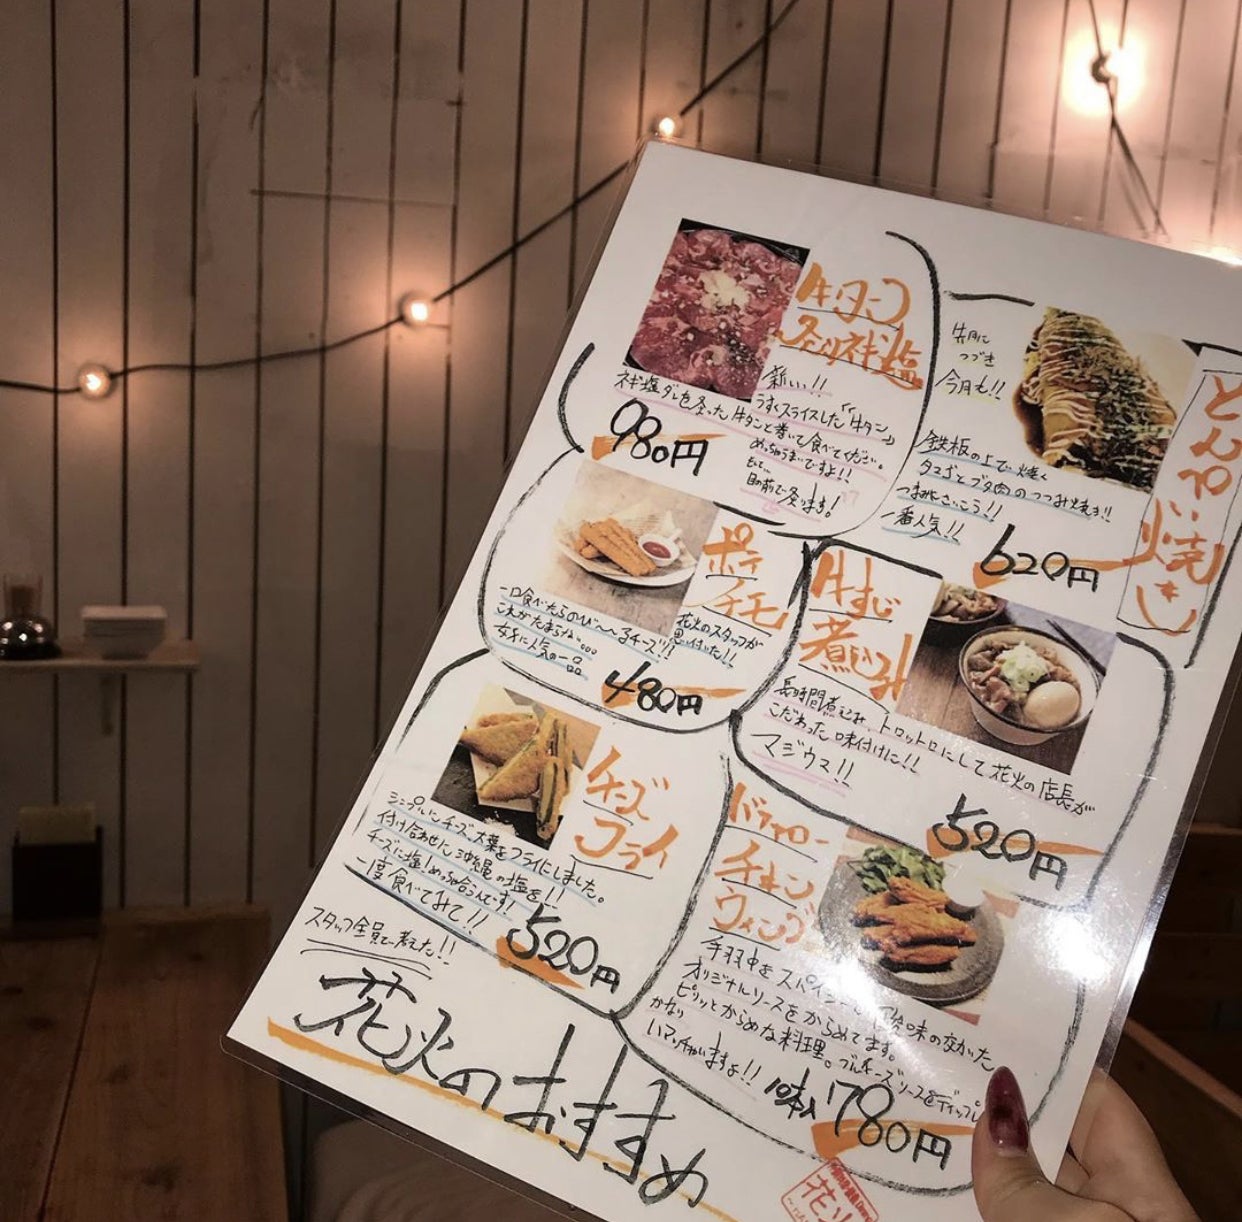 牛タン
炙りネギ塩
新しい!!
うすくスライスした「牛タン」
ネギ塩ダレを炙った牛タンと巻いて食べてください。
めっちゃうまいですよ!!
目の前で炙ります!
980円
とんぺい焼き
先月に
つづき
今月も!!
鉄板の上で焼く
タマゴとブタ肉のつつみ焼き!!
つまみにさいこう!!
一番人気!!
620円
ポテ
チーモ
花火のスタッフが
思い付いた!!
一口食べたらのび〜〜るチーズ!!
これがたまらない。。。
女子に人気の一品
480円
牛すじ
煮込み
長時間煮込み、トロットロにして花火の店長が
こだわった味付けに!!
マジウマ!!
520円
チーズ
フライ
シンプルにチーズ、大葉をフライにしました。
付け合わせに沖縄の塩を!!
チーズに塩!めっちゃ合うんです!
一度食べてみて!!
520円
バッファロー
チキン
ウィング
手羽中をスパイシーで酸味の交かった
オリジナルソースをからめてます。
ピリッとからめな料理。ブルーチーズソースをディップし
かなり
いマッチゃいますよ!!
10本入 780円
スタッフ全員で考えた!!
花火のおすすめ
花火